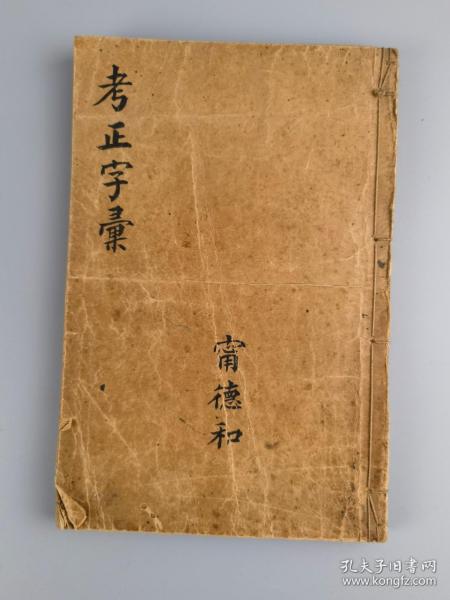 考正字彙
甯德和
孔夫子旧书网
www.kongfz.com